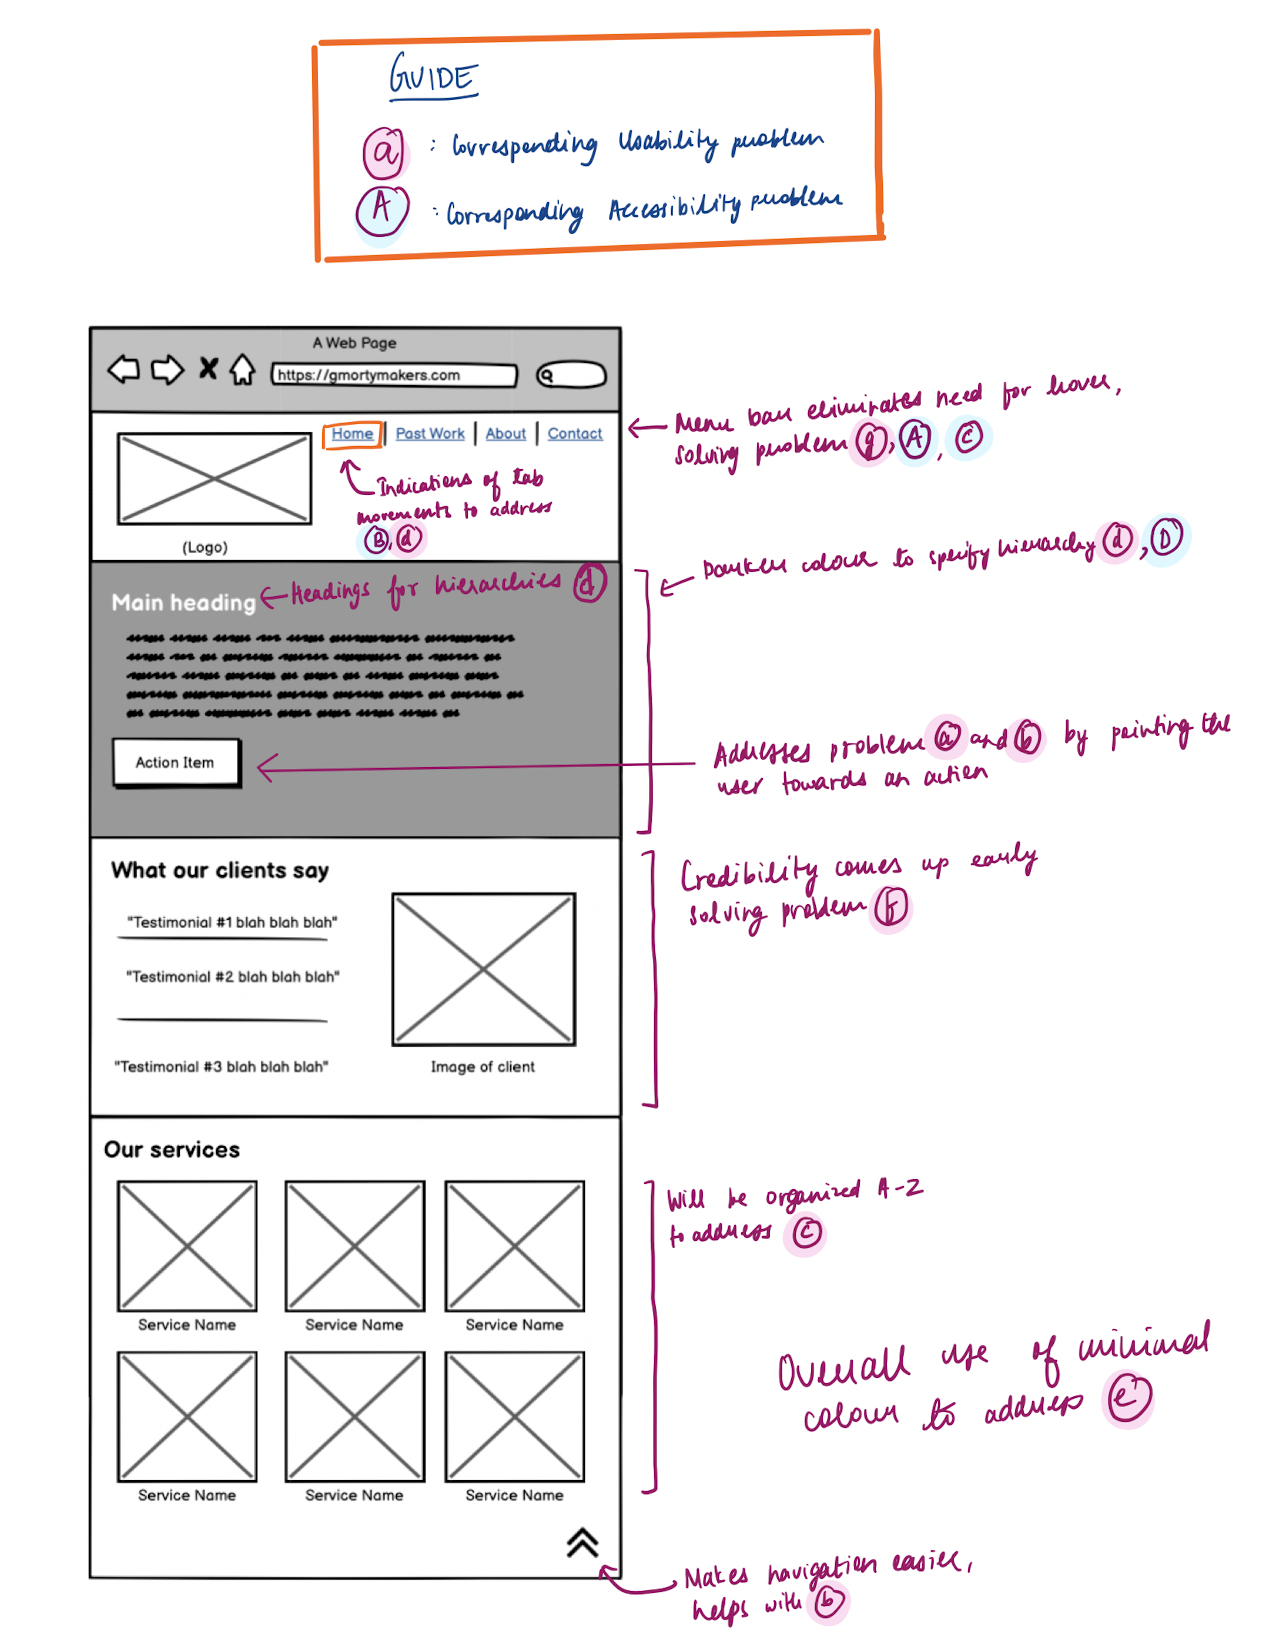 GUIDE
a : Corresponding Usability problem
A : Corresponding Accessibility problem
A Web Page
https://gmortymakers.com
Home | Past Work | About | Contact
(Logo)
Menu bar eliminates need for hover,
solving problem g, A, C
Indications of tab
movements to address
B, d
Darker colour to specify hierarchy d, D
Main heading
Headings for hierarchies d
Action Item
Addresses problem a and b by pointing the
user towards an action
What our clients say
"Testimonial #1 blah blah blah"
"Testimonial #2 blah blah blah"
"Testimonial #3 blah blah blah"
Image of client
Credibility comes up early
solving problem f
Our services
Service Name
Service Name
Service Name
Service Name
Service Name
Service Name
Will be organized A-Z
to address c
Overall use of minimal
colour to address e
Makes navigation easier,
helps with b